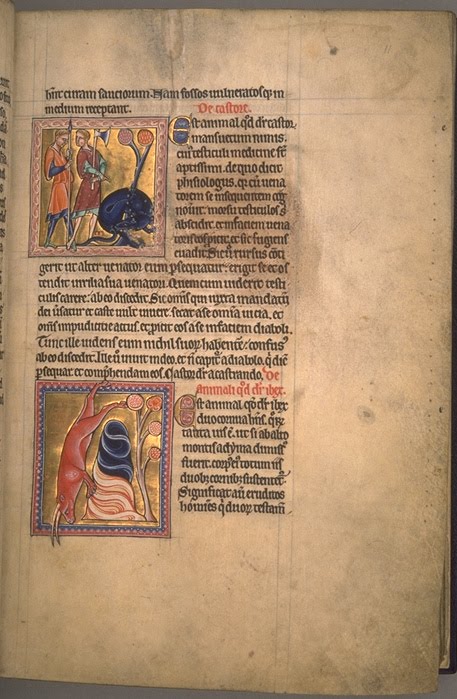 hñt curam sauciorum. Nam fossos uulneratosq; in
medium receptant. De castore.
Est animal qd dr castor
mansuetum nimis.
cui testiculi medicine st
aptissimi. de quo dicit
phisiologus. qr cu uena
torem se insequentem cog
nouit. morsu testiculos
abscidit. et in faciem uena
toris eos picit. et sic fugiens
euadit. Si u rursus cōti
gerit ut alter uenator eum psequatur. erigit se et os
tendit uirilia sua uenatori. Quem cum uiderit testi
culis carere. ab eo discedit. Sic omnis qui iuxta mandatu
dei uersatur et caste uult uiuere. secat a se omnia uicia. et
omis impudicitie actus. et picit eos a se in faciem diaboli.
Tunc ille uidens eum nichil suorum habentem. confusus
ab eo discedit. Ille u uiuit in deo. et ñ capit a diabolo. qi dicit
persequar et comprehendam eos. Castor dr a castrando. De
Animali qd dr ibex.
Est animal qd dr ibex
duo cornua hñs. quorum
tanta uis e. ut si ab alto
montis ad yma dimissus
fuerit. corpus ei totum his
duob; cornib; sustentetur.
Significat aut eruditos
homines qi duorum testam